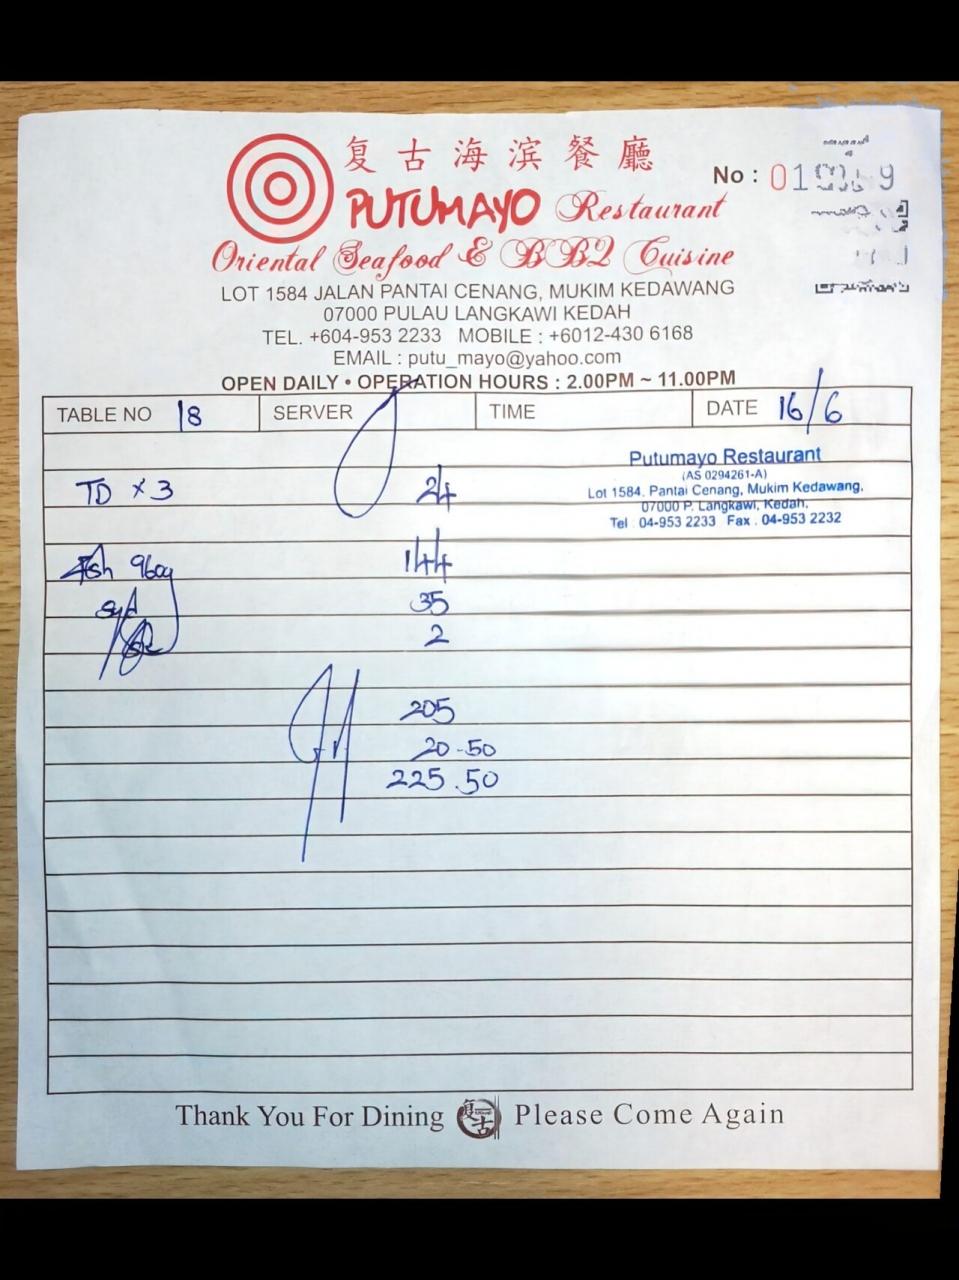 复古海滨餐廳
PUTUMAYO Restaurant
No :
Oriental Seafood & BBQ Cuisine
LOT 1584 JALAN PANTAI CENANG, MUKIM KEDAWANG
07000 PULAU LANGKAWI KEDAH
TEL. +604-953 2233 MOBILE : +6012-430 6168
EMAIL : putu_mayo@yahoo.com
OPEN DAILY • OPERATION HOURS : 2.00PM ~ 11.00PM
TABLE NO 18 SERVER TIME DATE 16/6
Putumayo Restaurant
(AS 0294261-A)
Lot 1584, Pantai Cenang, Mukim Kedawang,
07000 P. Langkawi, Kedah.
Tel : 04-953 2233 Fax : 04-953 2232
TD x 3 24
Fish 960g 144
35
2
205
20.50
225.50
Thank You For Dining 复古 Please Come Again